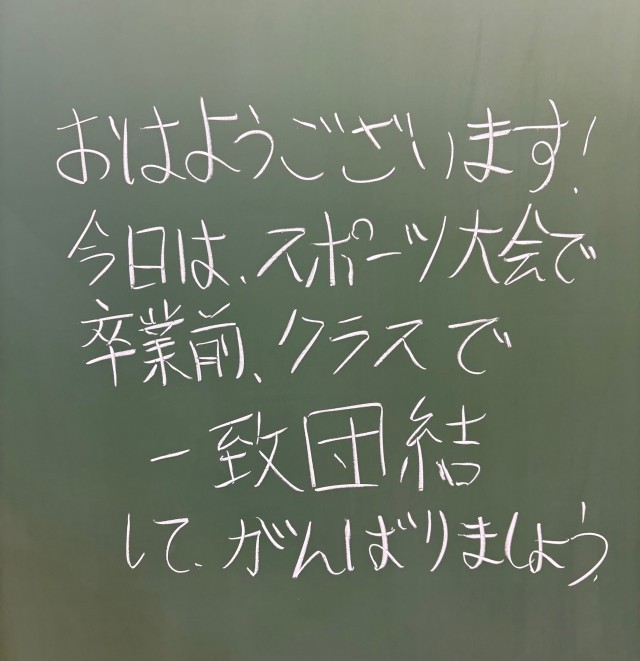 おはようございます!
今日は、スポーツ大会で
卒業前、クラスで
一致団結
して、がんばりましょう